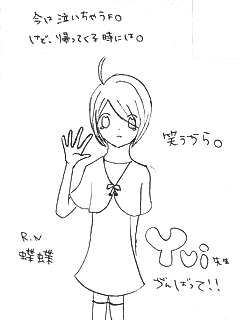 今は泣いちゃうFO
けど、帰ってくる時には。
笑うから。
R.N
蝶蝶
Yui先生
がんばって!!